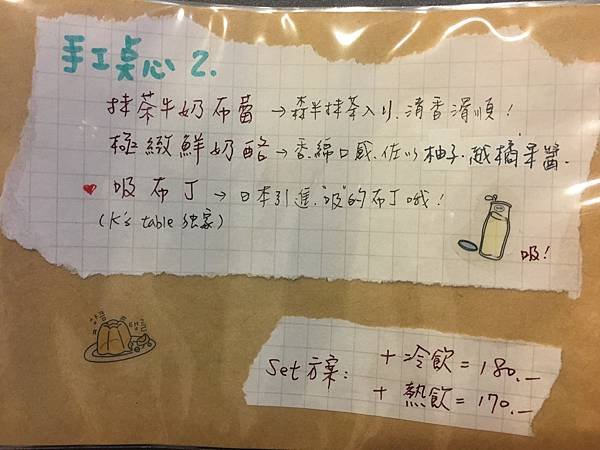 手工桌心 2.
抹茶牛奶布蕾 → 森半抹茶入り.清香滑順!
極緻鮮奶酪 → 香.綿口感.佐以柚子.越橘果醬.
♥ 吸布丁 → 日本引進."吸"的布丁哦!
(K's table 独家)
吸!
상큼
탱글
Set 方案: + 冷飲 = 180.-
+ 熱飲 = 170.-